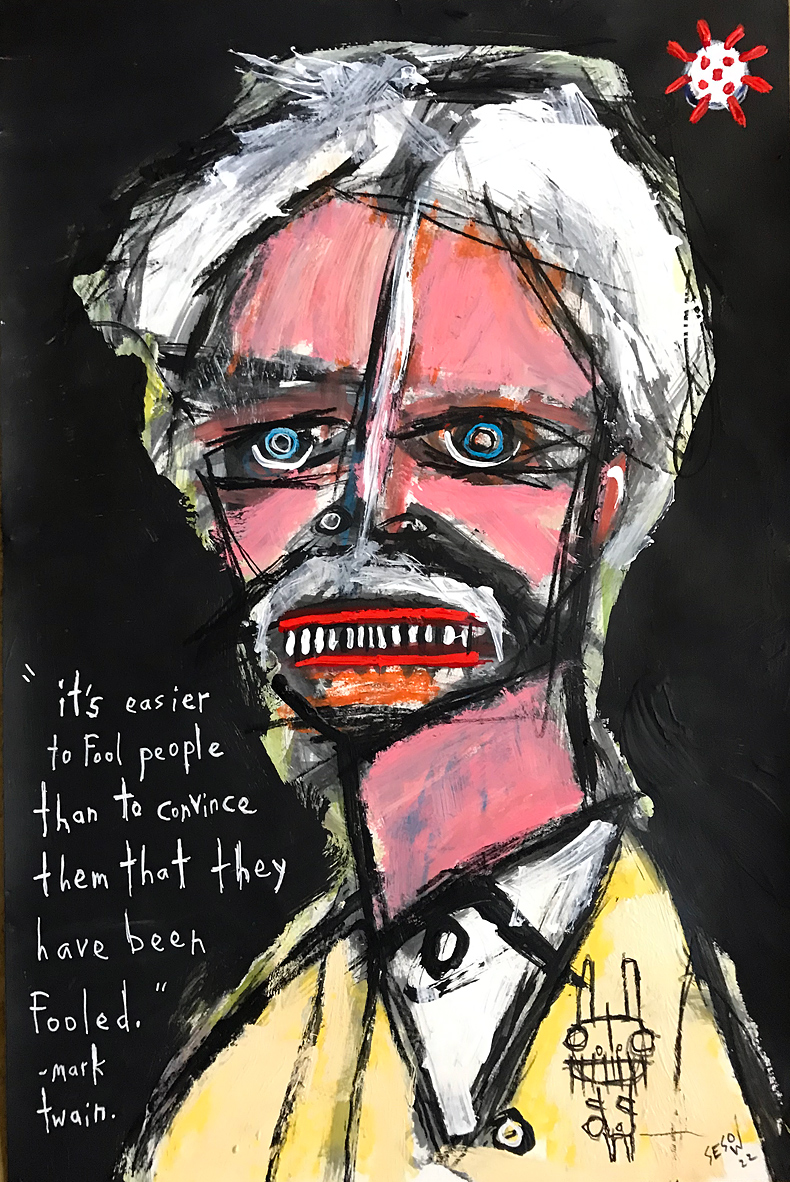 "it's easier
to Fool people
than to convince
them that they
have been
Fooled."
-mark
twain.
SESOW
22